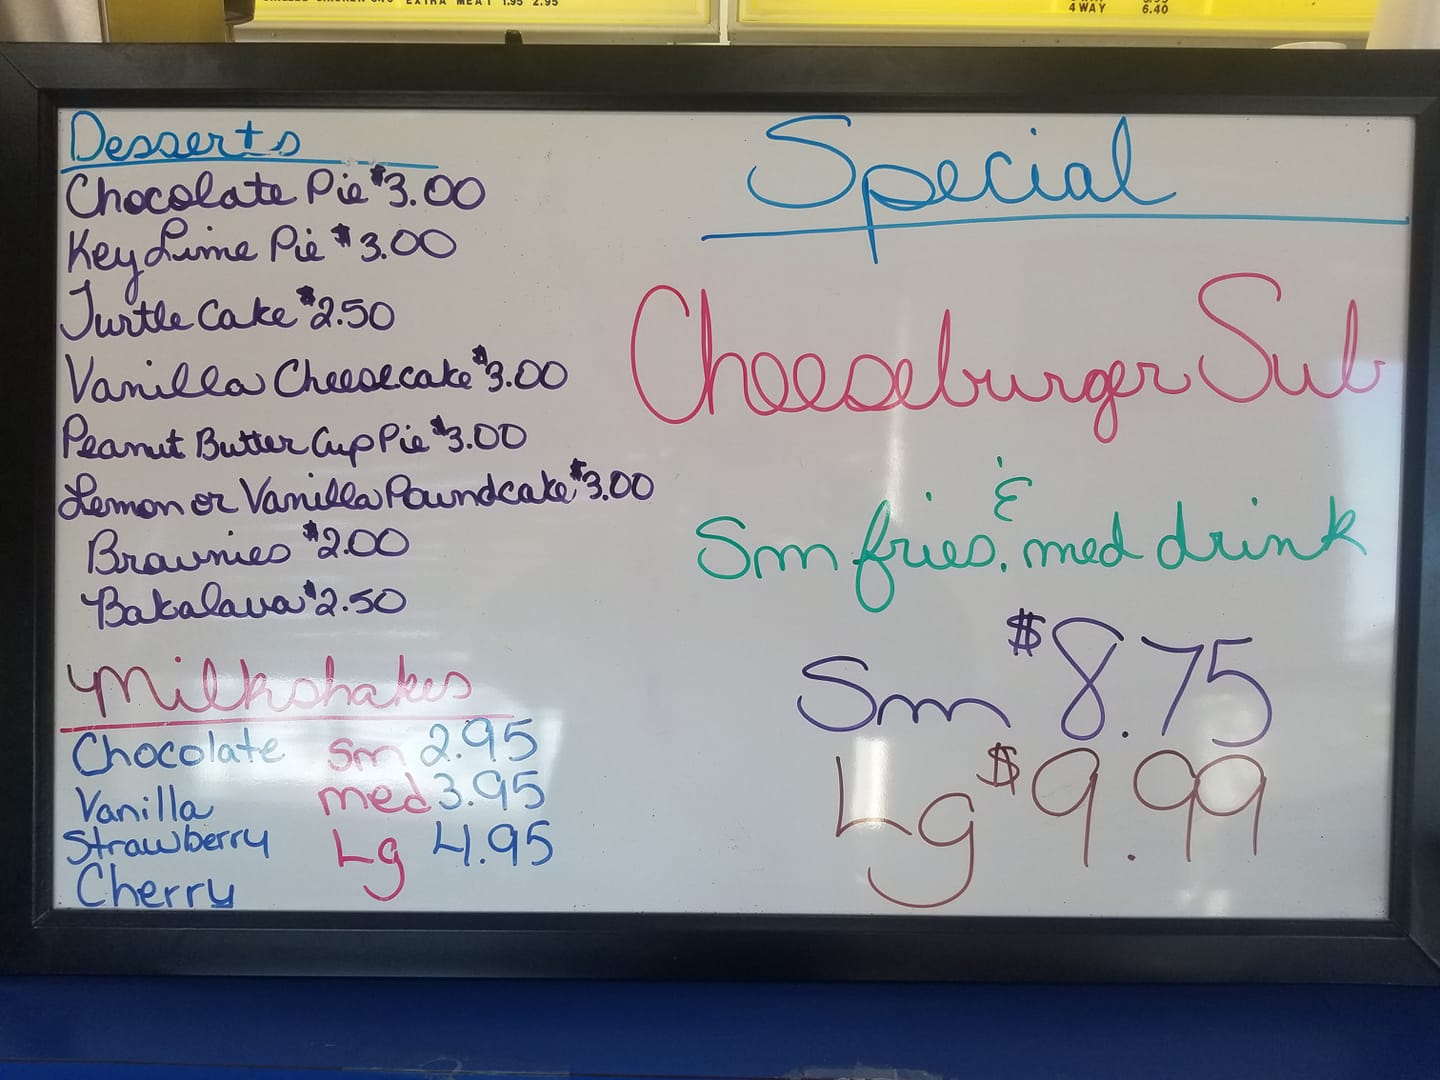 EXTRA MEAT 1.95 2.95
4 WAY 6.40
Desserts
Chocolate Pie $3.00
Key Lime Pie $3.00
Turtle Cake $2.50
Vanilla Cheesecake $3.00
Peanut Butter Cup Pie $3.00
Lemon or Vanilla Poundcake $3.00
Brownies $2.00
Bakalava $2.50
Milkshakes
Chocolate sm 2.95
Vanilla med 3.95
Strawberry Lg 4.95
Cherry
Special
Cheeseburger Sub
&
Sm fries, med drink
Sm $8.75
Lg $9.99